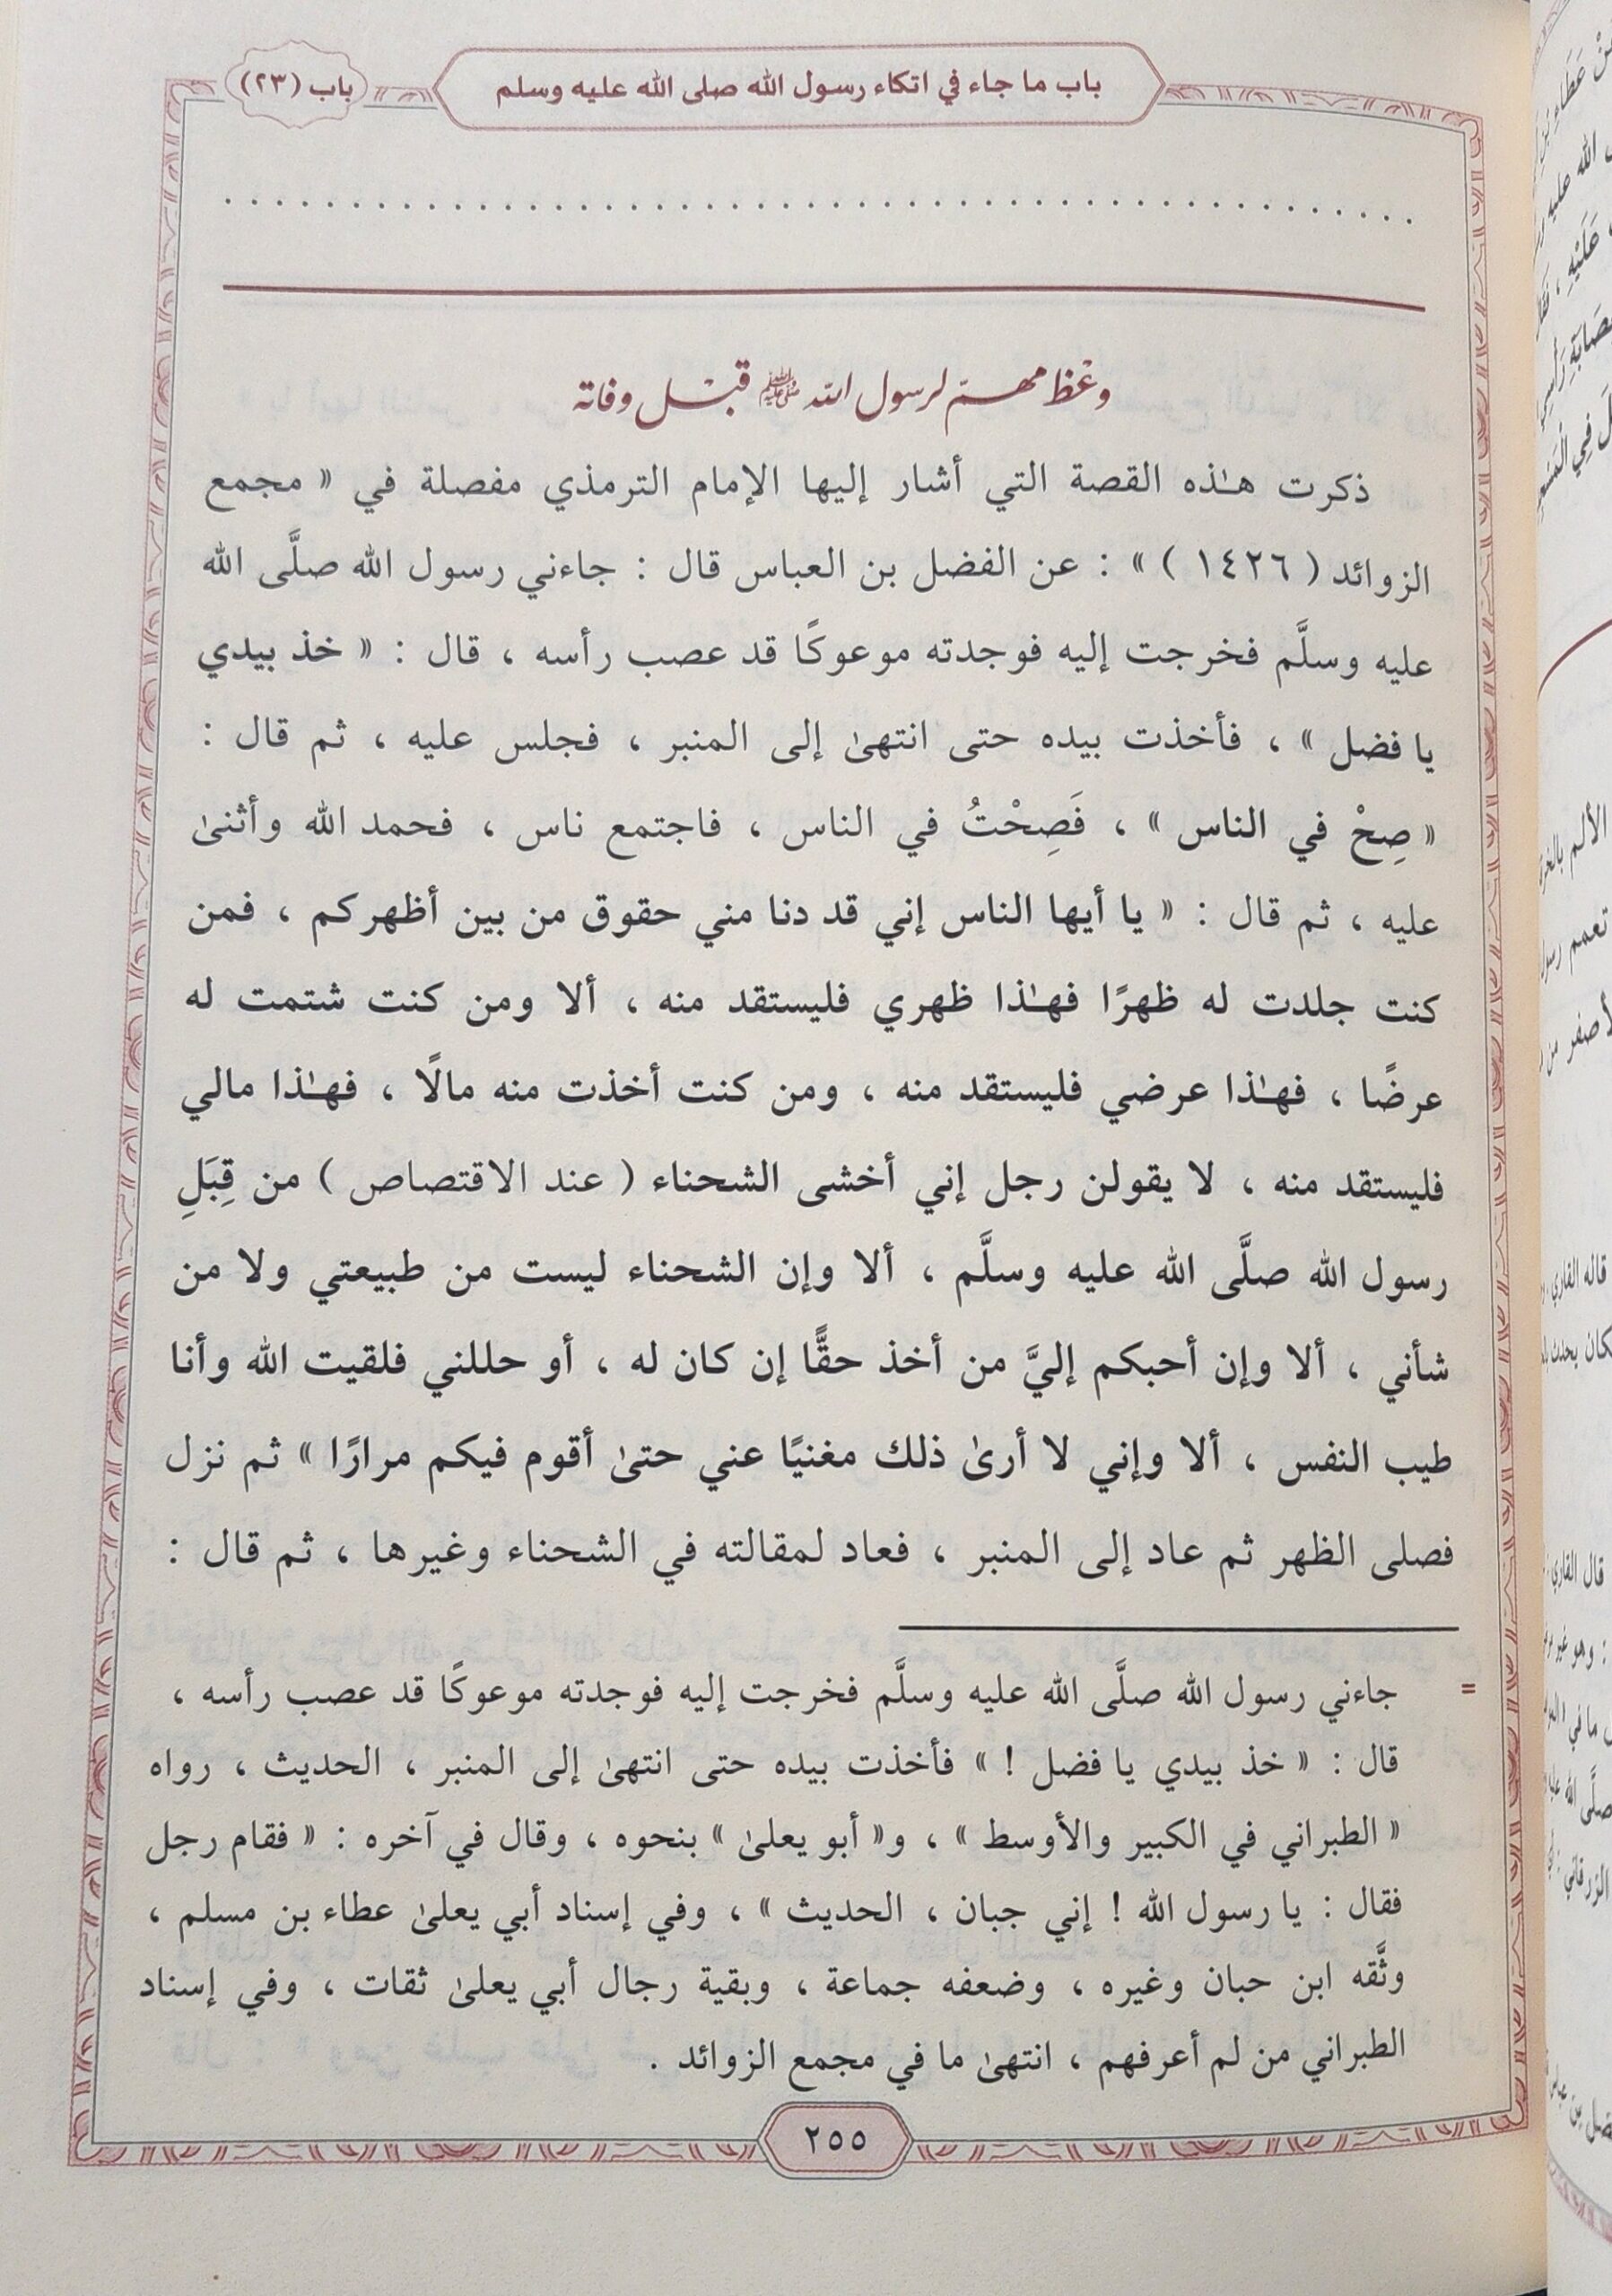 باب ما جاء في اتكاء رسول الله صلى الله عليه وسلم
باب (٢٣)
وعظ مهمّ لرسول الله ﷺ قبل وفاته
ذكرت هـٰذه القصة التي أشار إليها الإمام الترمذي مفصلة في « مجمع
الزوائد ( ١٤٢٦ ) » : عن الفضل بن العباس قال : جاءني رسول الله صلَّى الله
عليه وسلَّم فخرجت إليه فوجدته موعوكًا قد عصب رأسه ، قال : « خذ بيدي
يا فضل » ، فأخذت بيده حتى انتهىٰ إلى المنبر ، فجلس عليه ، ثم قال :
« صِحْ في الناس » ، فَصِحْتُ في الناس ، فاجتمع ناس ، فحمد الله وأثنىٰ
عليه ، ثم قال : « يا أيها الناس إني قد دنا مني حقوق من بين أظهركم ، فمن
كنت جلدت له ظهرًا فهـٰذا ظهري فليستقد منه ، ألا ومن كنت شتمت له
عرضًا ، فهـٰذا عرضي فليستقد منه ، ومن كنت أخذت منه مالًا ، فهـٰذا مالي
فليستقد منه ، لا يقولن رجل إني أخشى الشحناء ( عند الاقتصاص ) من قِبَلِ
رسول الله صلَّى الله عليه وسلَّم ، ألا وإن الشحناء ليست من طبيعتي ولا من
شأني ، ألا وإن أحبكم إليَّ من أخذ حقًّا إن كان له ، أو حللني فلقيت الله وأنا
طيب النفس ، ألا وإني لا أرىٰ ذلك مغنيًا عني حتىٰ أقوم فيكم مرارًا » ثم نزل
فصلى الظهر ثم عاد إلى المنبر ، فعاد لمقالته في الشحناء وغيرها ، ثم قال :
= جاءني رسول الله صلَّى الله عليه وسلَّم فخرجت إليه فوجدته موعوكًا قد عصب رأسه ،
قال : « خذ بيدي يا فضل ! » فأخذت بيده حتى انتهىٰ إلى المنبر ، الحديث ، رواه
« الطبراني في الكبير والأوسط » ، و« أبو يعلىٰ » بنحوه ، وقال في آخره : « فقام رجل
فقال : يا رسول الله ! إني جبان ، الحديث » ، وفي إسناد أبي يعلىٰ عطاء بن مسلم ،
وثَّقه ابن حبان وغيره ، وضعفه جماعة ، وبقية رجال أبي يعلىٰ ثقات ، وفي إسناد
الطبراني من لم أعرفهم ، انتهىٰ ما في مجمع الزوائد .
٢٥٥